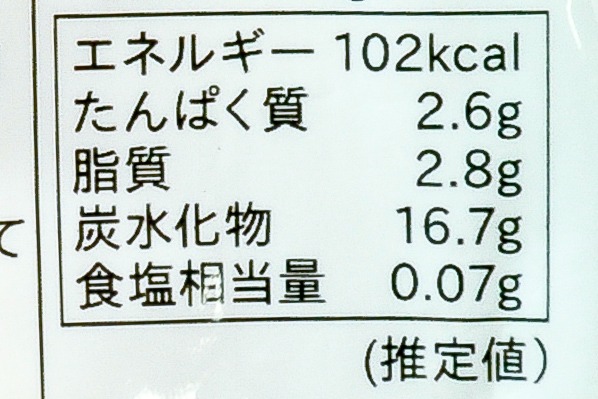 エネルギー 102kcal
たんぱく質 2.6g
脂質 2.8g
炭水化物 16.7g
て
食塩相当量 0.07g
(推定値)